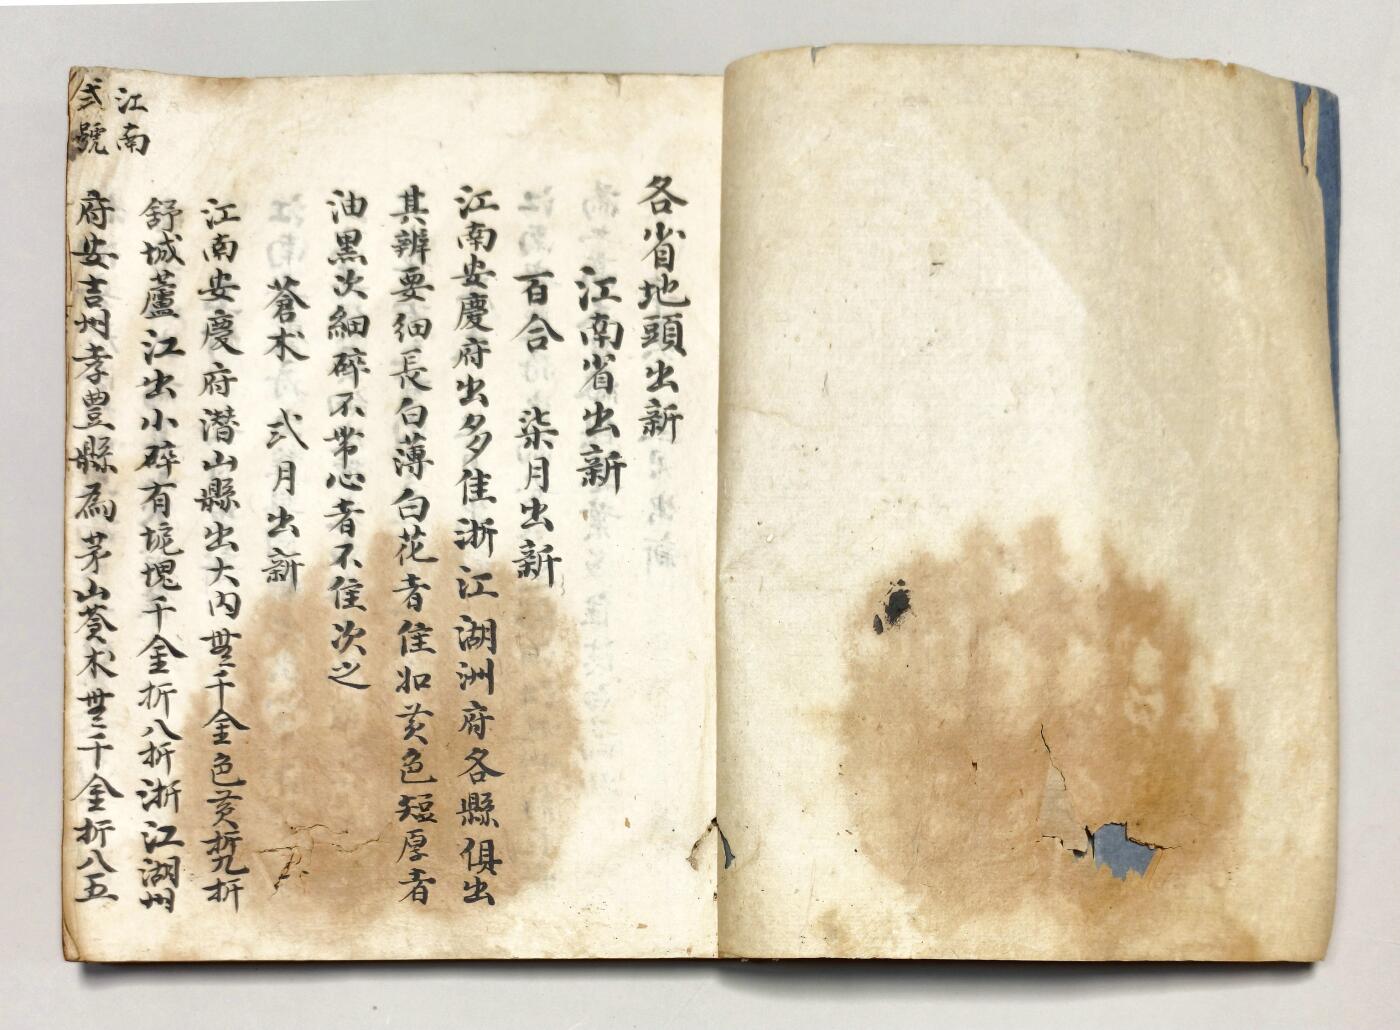 各省地頭出新
江南省出新
百合 柒月出新
江南安慶府出多佳浙江湖洲府各縣俱出
其辨要細長白薄白花者佳如黃色短厚者
油黑次細碎不帶心者不佳次之
蒼朮 弍月出新
江南安慶府潛山縣出大內無千金色黃折九折
舒城蘆江出小碎有塊千金折八折浙江湖州
府安吉州孝豊縣為茅山蒼朮無千金折八五
江南
弍號